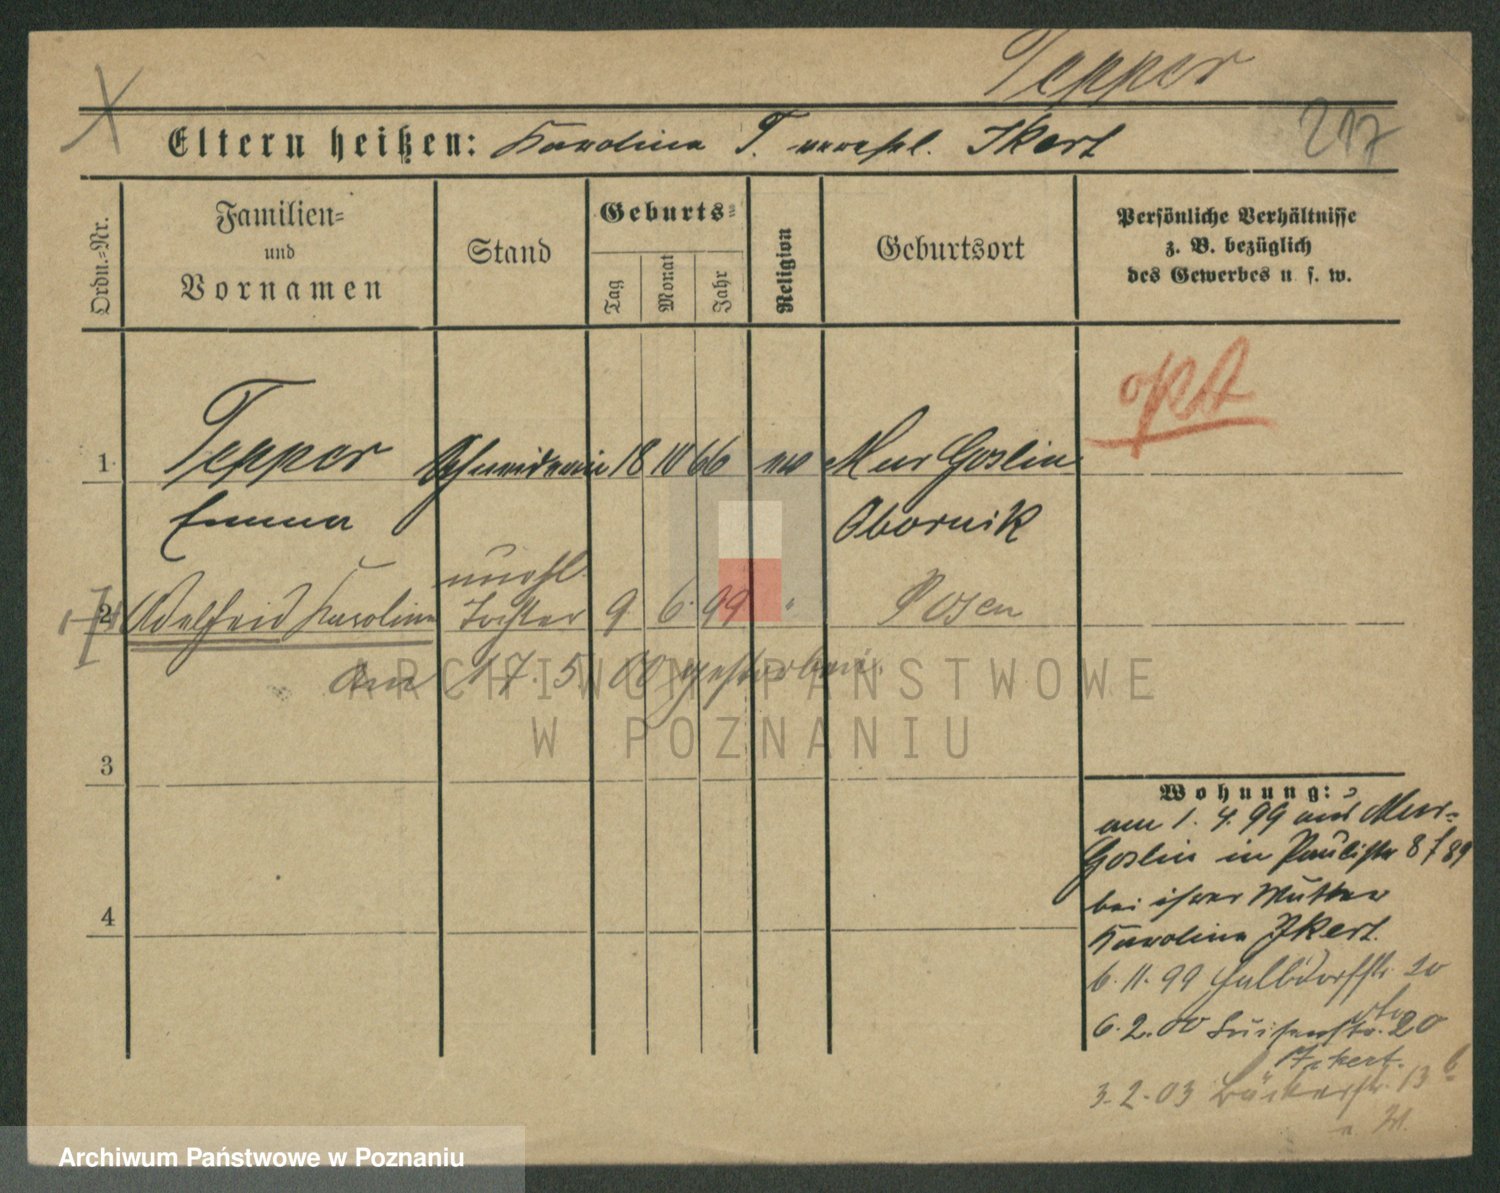 Tepper
217
Eltern heißen: Karolina T. verehl. Ikert
Ordn.-Nr.
Familien-
und
Vornamen
Stand
Geburts-
Tag
Monat
Jahr
Religion
Geburtsort
Persönliche Verhältnisse
z. B. bezüglich
des Gewerbes u. s. w.
1 Tepper Schneiderin 18 10 66 ev Mur Goslin
Emma Obornik
unehl.
2 Adelheid Karoline Tochter 9. 6. 99 " Posen
am 17. 5. 00 gestorben.
ARCHIWUM PAŃSTWOWE
W POZNANIU
3
4
Wohnung:
am 1. 4. 99 aus Mur-
Goslin in Paulistr 8
bei ihrer Mutter
Karolina Ikert.
6. 11. 99 Halbdorfstr. 20
6. 2. 00 Luisenstr. 20
Ikert.
3. 2. 03 Bäckerstr. 13
Archiwum Państwowe w Poznaniu